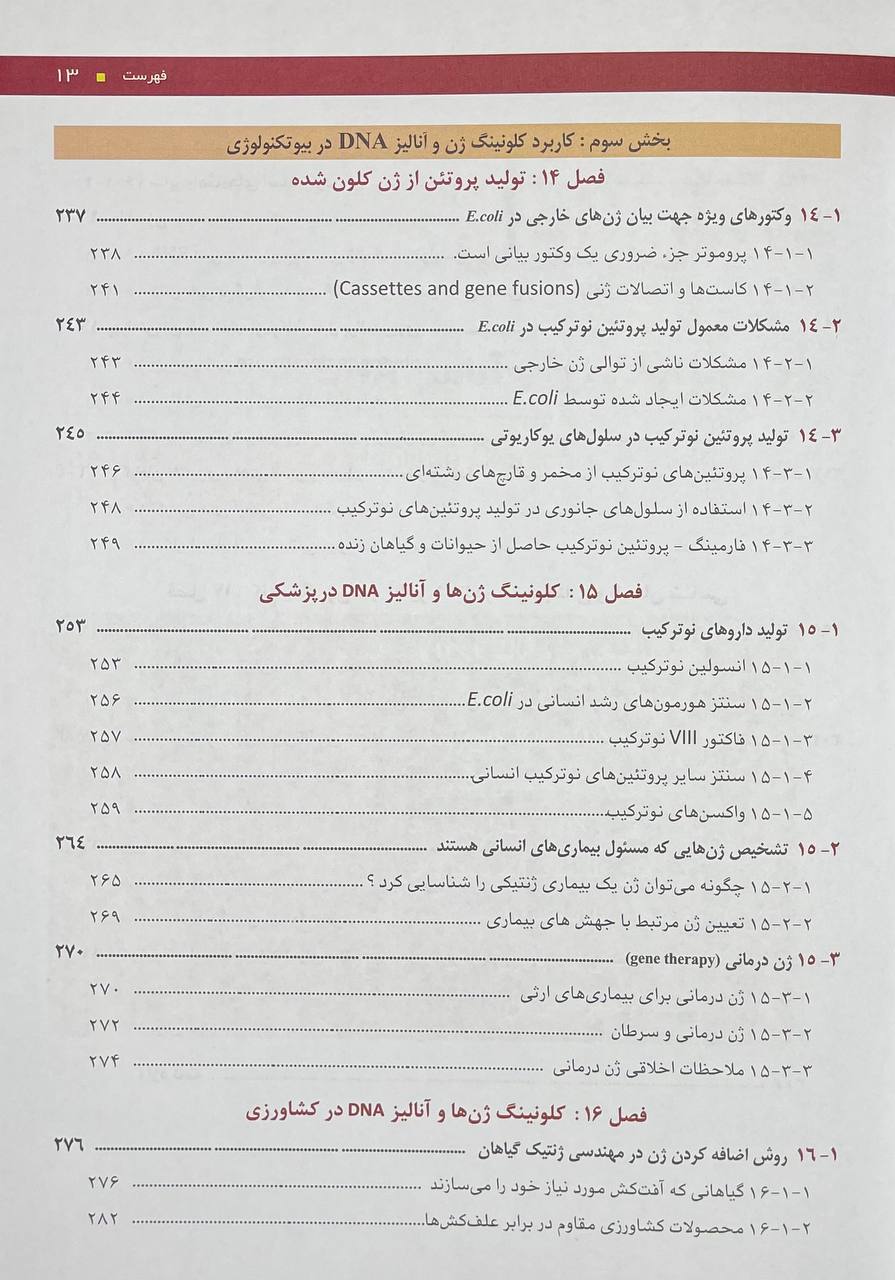 فهرست ۱۳
بخش سوم : کاربرد کلونینگ ژن و آنالیز DNA در بیوتکنولوژی
فصل ۱۴: تولید پروتئن از ژن کلون شده
۱۴-۱ وکتورهای ویژه جهت بیان ژن‌های خارجی در E.coli ........ ۲۳۷
۱۴-۱-۱ پروموتر جزء ضروری یک وکتور بیانی است. ........ ۲۳۸
۱۴-۱-۲ کاست‌ها و اتصالات ژنی (Cassettes and gene fusions) ........ ۲۴۱
۱۴-۲ مشکلات معمول تولید پروتئین نوترکیب در E.coli ........ ۲۴۳
۱۴-۲-۱ مشکلات ناشی از توالی ژن خارجی ........ ۲۴۳
۱۴-۲-۲ مشکلات ایجاد شده توسط E.coli ........ ۲۴۴
۱۴-۳ تولید پروتئین نوترکیب در سلول‌های یوکاریوتی ........ ۲۴۵
۱۴-۳-۱ پروتئین‌های نوترکیب از مخمر و قارچ‌های رشته‌ای ........ ۲۴۶
۱۴-۳-۲ استفاده از سلول‌های جانوری در تولید پروتئین‌های نوترکیب ........ ۲۴۸
۱۴-۳-۳ فارمینگ – پروتئین نوترکیب حاصل از حیوانات و گیاهان زنده ........ ۲۴۹
فصل ۱۵: کلونینگ ژن‌ها و آنالیز DNA درپزشکی
۱۵-۱ تولید داروهای نوترکیب ........ ۲۵۳
۱۵-۱-۱ انسولین نوترکیب ........ ۲۵۳
۱۵-۱-۲ سنتز هورمون‌های رشد انسانی در E.coli ........ ۲۵۶
۱۵-۱-۳ فاکتور VIII نوترکیب ........ ۲۵۷
۱۵-۱-۴ سنتز سایر پروتئین‌های نوترکیب انسانی ........ ۲۵۸
۱۵-۱-۵ واکسن‌های نوترکیب ........ ۲۵۹
۱۵-۲ تشخیص ژن‌هایی که مسئول بیماری‌های انسانی هستند ........ ۲۶۴
۱۵-۲-۱ چگونه می‌توان ژن یک بیماری ژنتیکی را شناسایی کرد ؟ ........ ۲۶۵
۱۵-۲-۲ تعیین ژن مرتبط با جهش های بیماری ........ ۲۶۹
۱۵-۳ ژن درمانی (gene therapy) ........ ۲۷۰
۱۵-۳-۱ ژن درمانی برای بیماری‌های ارثی ........ ۲۷۰
۱۵-۳-۲ ژن درمانی و سرطان ........ ۲۷۲
۱۵-۳-۳ ملاحظات اخلاقی ژن درمانی ........ ۲۷۴
فصل ۱۶: کلونینگ ژن‌ها و آنالیز DNA در کشاورزی
۱۶-۱ روش اضافه کردن ژن در مهندسی ژنتیک گیاهان ........ ۲۷۶
۱۶-۱-۱ گیاهانی که آفت‌کش مورد نیاز خود را می‌سازند ........ ۲۷۶
۱۶-۱-۲ محصولات کشاورزی مقاوم در برابر علف‌کش‌ها ........ ۲۸۲